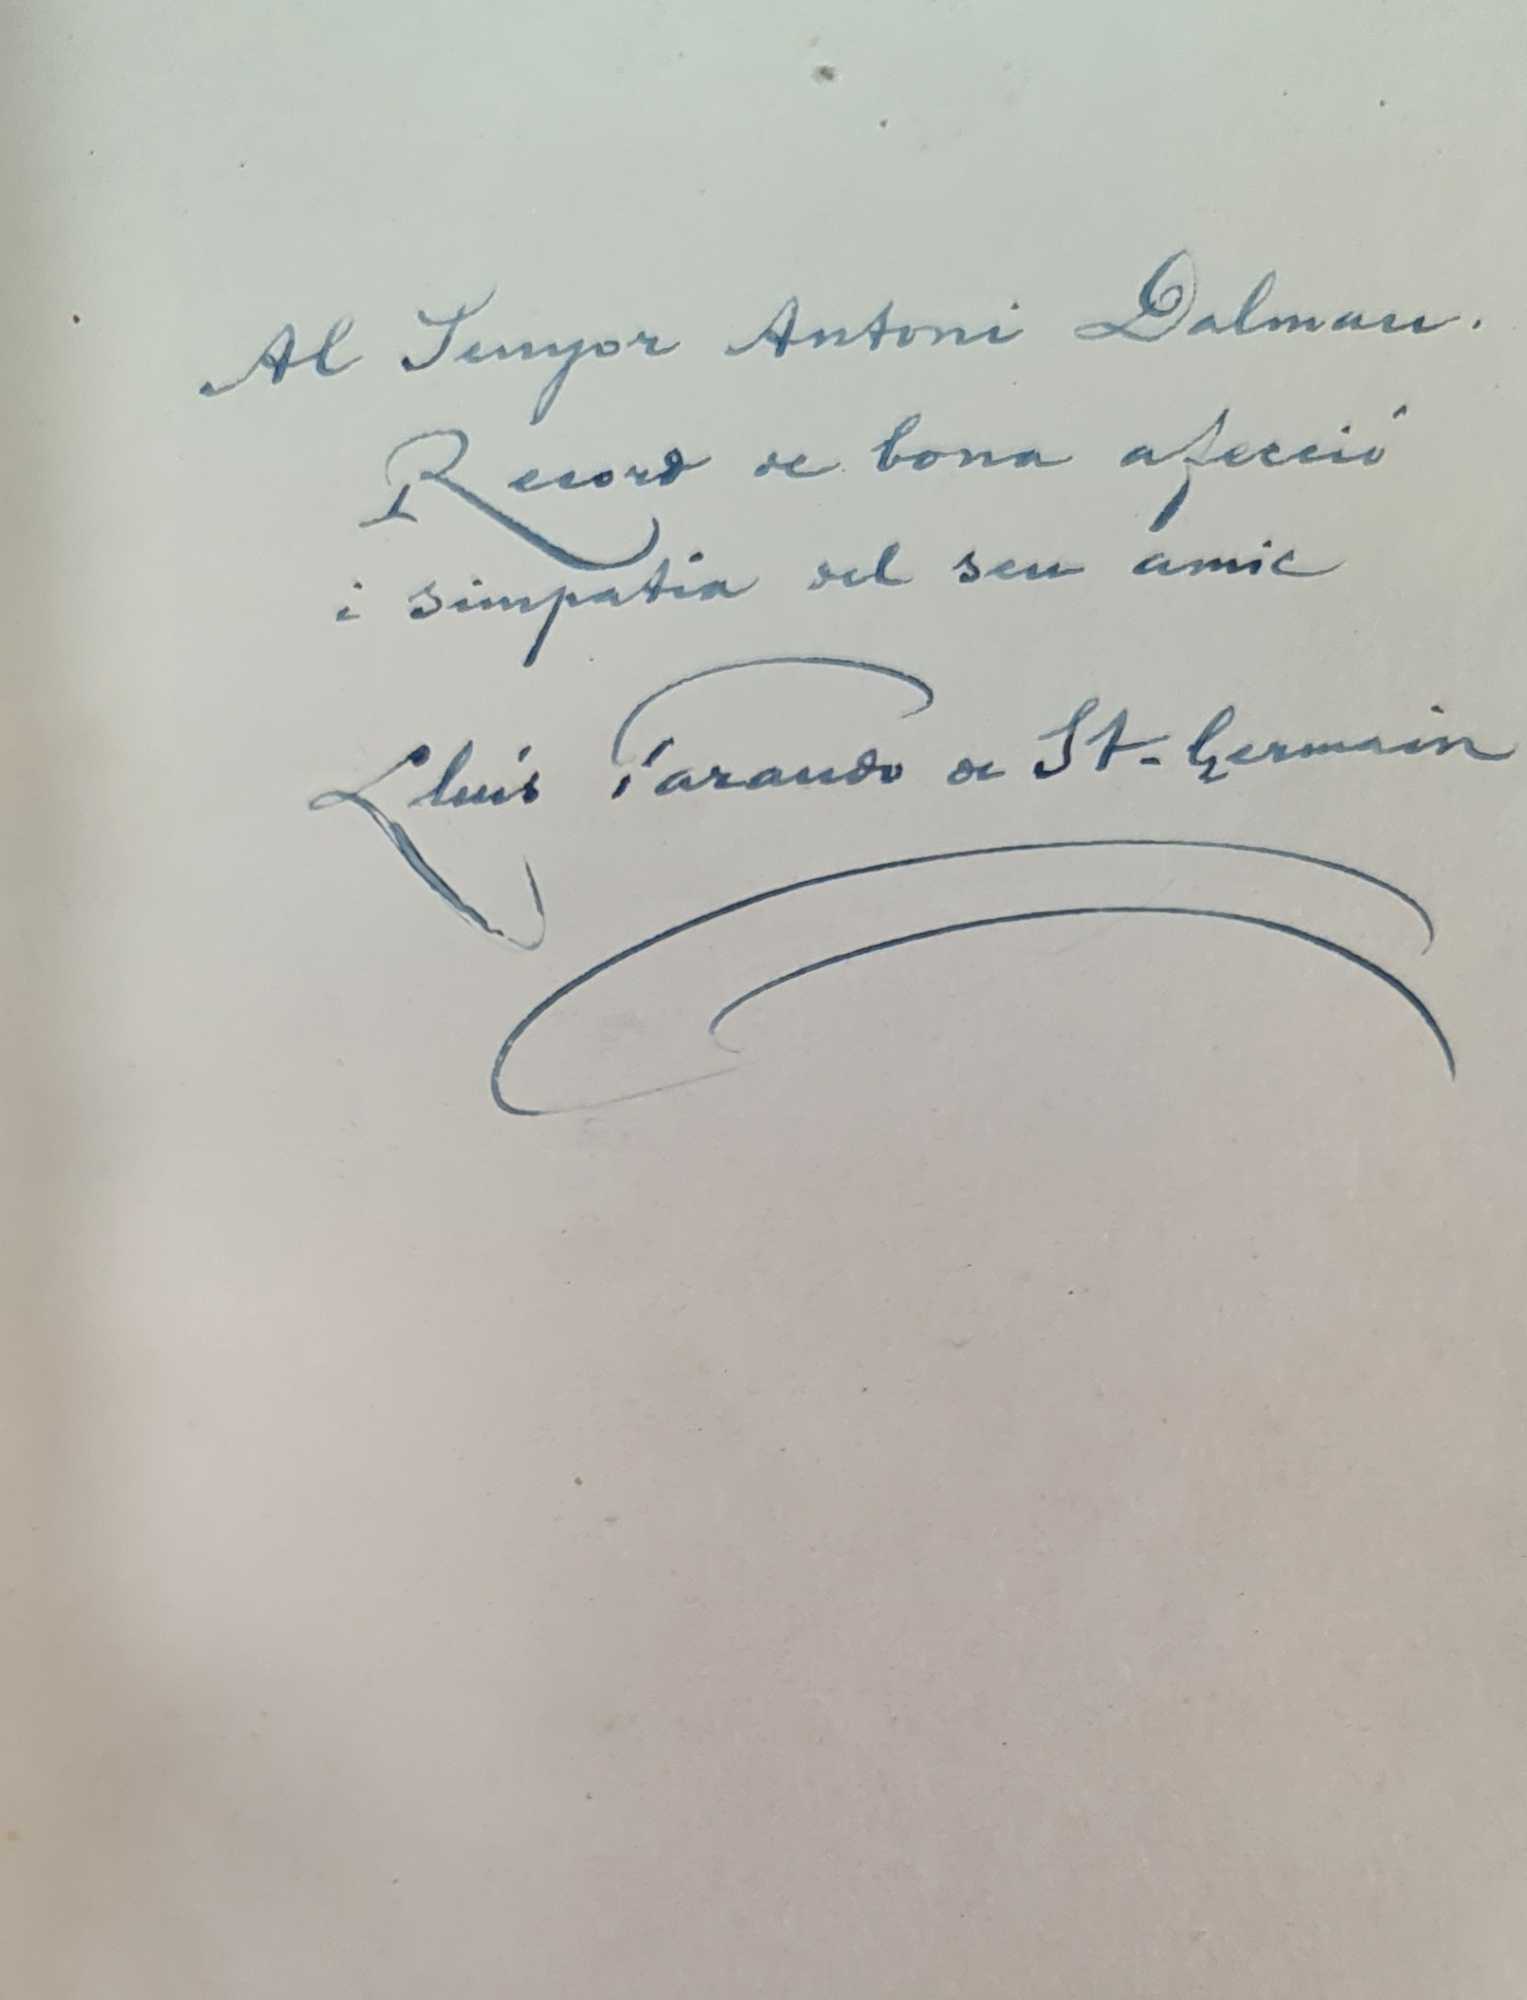 Al Senyor Antoni Dalmau.
Record de bona afecció
i simpatia del seu amic
Lluís Paraudo de St-Germain